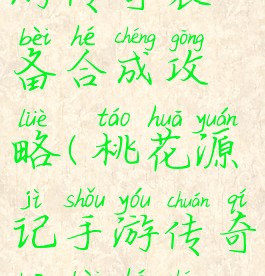 bèi hé chéng gōng
备合成攻
lüè táo huā yuán
略(桃花源
jì shǒu yóu chuán qí
记手游传奇